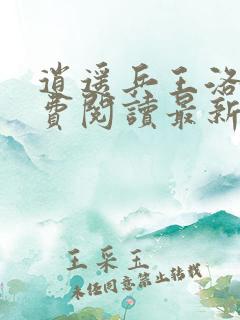 逍遥兵王洛
費閱讀最新
王采玉
未经同意禁止转载